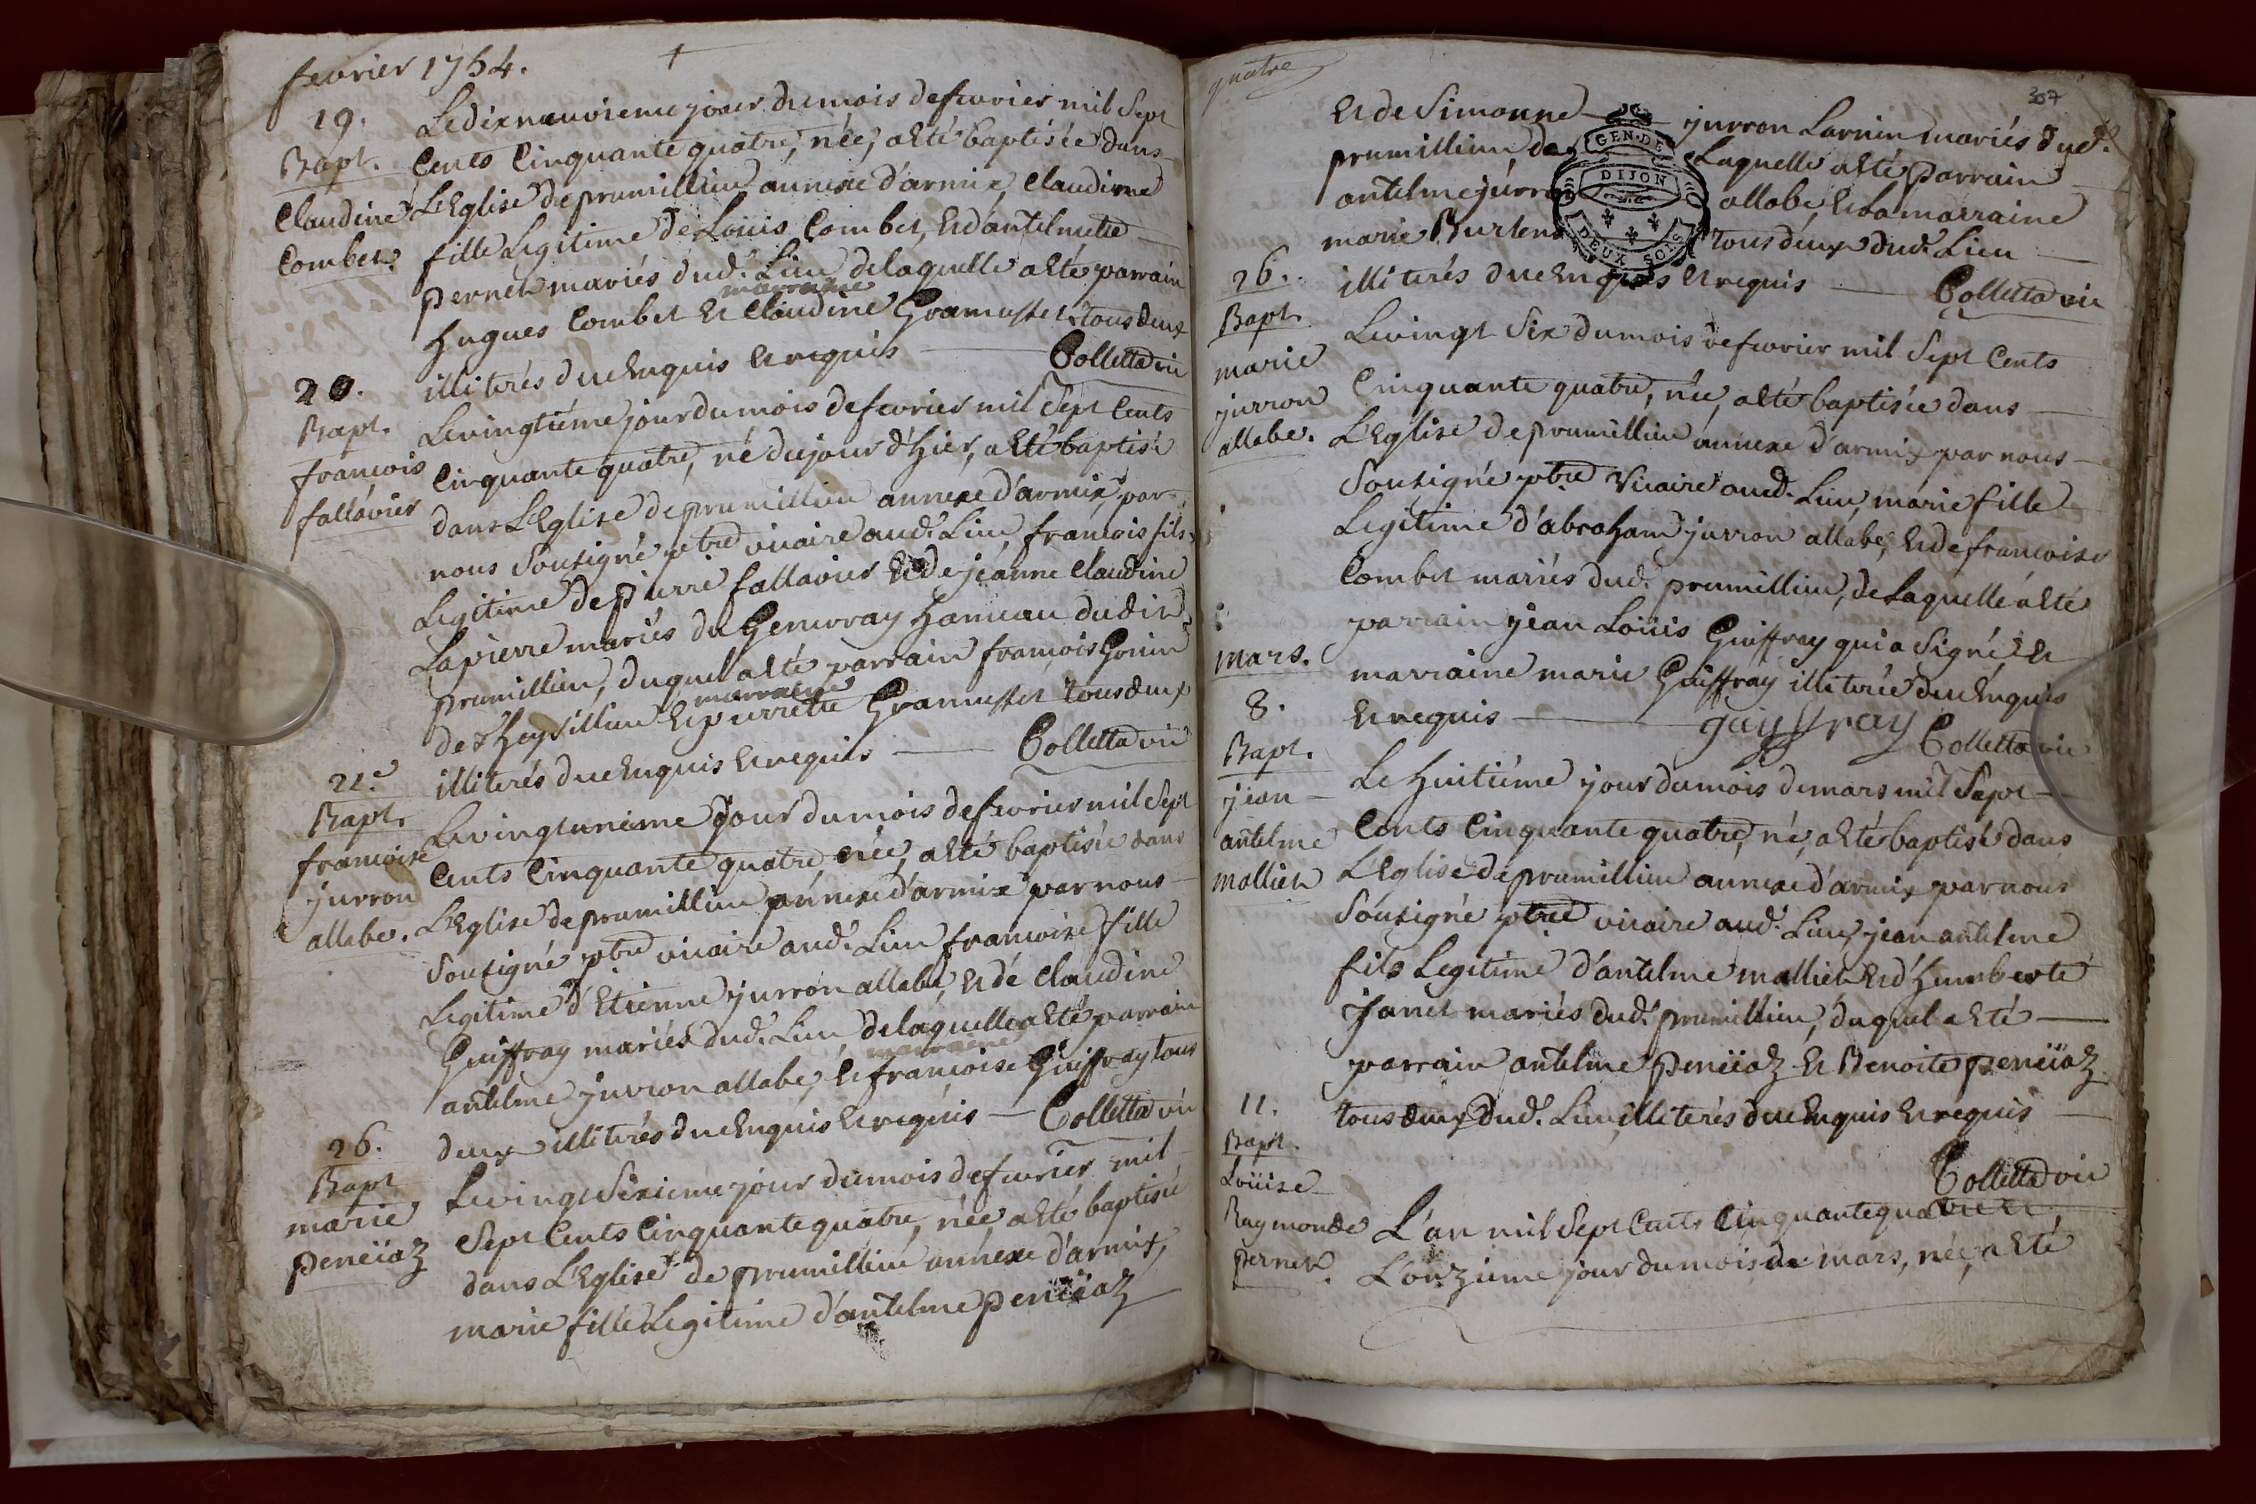 fevrier 1754.
19.
Bapt.
Claudine
Combet.
Le dix neuvieme jour du mois de fevrier mil Sept
Cents Cinquante quatre, née, a Eté baptisée dans
L'Eglise de prumillieu annexe d'armix, Claudine
fille Legitime de Loüis Combet, Et d'antelmette
pernet mariés dud.t Lieu de laquelle a Eté parrain
marraine
hugues Combet Et Claudine Gramusset tous deux
illiterés duement Enquis Et requis Colletta vic
20.
Bapt.
francois
fallavier
Le vingtiéme jour du mois de fevrier mil Sept Cents
Cinquante quatre, né du jour d'hier, a Eté baptisé
dans L'Eglise de prumillieu annexe d'armix, par
nous Sousigné ptre vicaire aud.t Lieu, francois fils
Legitime de pierre fallavier Et de jéanne Claudine
Lapierre mariés du Genevray hameau dudit
prumillieu, duquel a Eté parrain francois Gonin
marraine
de Cheysillieu Et pierrette Gramusset tous deux
illiterés due Enquis Et requis Colletta vic
21.e
Bapt.
francoise
jurron
allabe.
Le vingt uneme Jour du mois de fevrier mil Sept
Cents Cinquante quatre, née, a Eté baptisée dans
L'Eglise de prumillieu annexe d'armix par nous
Sousigné ptre vicaire aud.t Lieu francoise fille
Legitime d'Etienne jurron allabe, Et de Claudine
Guiffray mariés dud.t Lieu, de laquelle a Eté parrain
marraine
antelme jurron allabe, Et francoise Guiffray tous
deux illiterés due Enquis Et requis Colletta vic
26.
Bapt
marie
peneïaz
Le vingt Sixieme jour du mois de fevrier mil
Sept Cents Cinquante quatre, née a Eté baptisée
dans L'Eglise de prumillieu annexe d'armix,
marie fille Legitime d'antelme peneïaz
quatre
307
Et de Simonne jurron Larnin mariés dud.t
prumillieu de Laquelle a Eté parrain
antelme jurron allabe, Et La marraine
marie Burlen tous deux dud.t Lieu
illiterés due Enquis Et requis Colletta vic
GEN. DE
DIJON
DEUX SOLS
26.
Bapt.
marie
jurron
allabe.
Le vingt Six du mois de fevrier mil Sept Cents
Cinquante quatre, née, a Eté baptisée dans
L'Eglise de prumillieu annexe d'armix par nous
Sousigné ptre Vicaire aud.t Lieu, marie fille
Legitime d'abraham jurron allabé, Et de francoise
Combet mariés dud.t prumillieu, de Laquelle a Eté
parrain jean Loüis Guiffray qui a Signé Et
marraine marie Guiffray illiterée due Enquis
Et requis guiffray Colletta vic
mars.
8.
Bapt.
jean
antelme
molliet
Le huitiéme jour du mois de mars mil Sept
Cents Cinquante quatre, né, a Eté baptisé dans
L'Eglise de prumillieu annexe d'armix par nous
Sousigné ptre vicaire aud.t Lieu, jean antelme
fils Legitime d'antelme molliet Et d'humberte
Janet mariés dud.t prumillieu, duquel a Eté
parrain antelme peneïaz Et Benoite peneïaz
tous deux dud.t Lieu, illiterés due Enquis Et requis
Colletta vic
11.
Bapt.
Loüise
Raymonde
pernet.
L'an mil Sept Cents Cinquante quatre Et
L'onzieme jour du mois de mars, née, a Eté